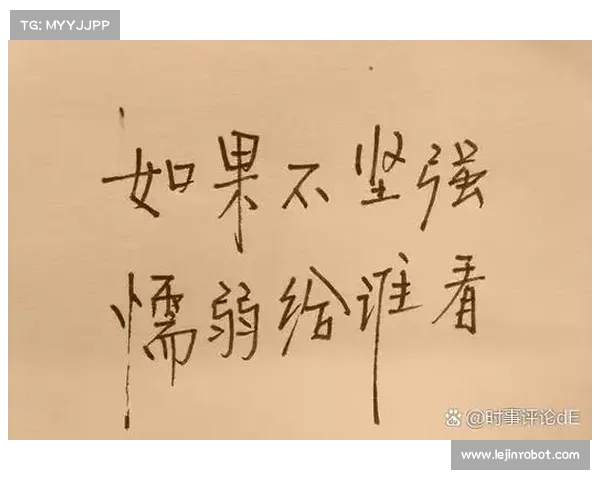 TG: MYYJJPP
如果不坚强
懦弱给谁看
@时事评论dE
www.lejinrobot.com